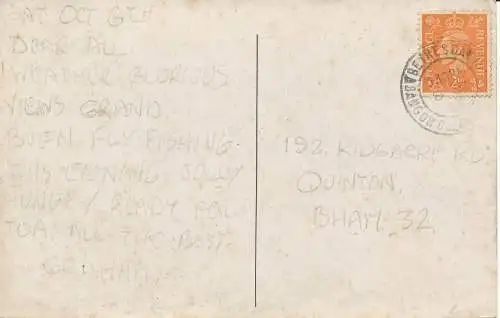 SAT OCT 6TH
DEAR ALL
WEATHER GLORIOUS
VIEWS GRAND.
BUEN FLY FISHING
THIS EVENING JOLLY
HUNGRY READY FOR
TEA. ALL THE BEST
192, RIDGACRE RD.
QUINTON,
BHAM. 32.
POSTAGE
REVENUE
BETHESDA
BANGOR